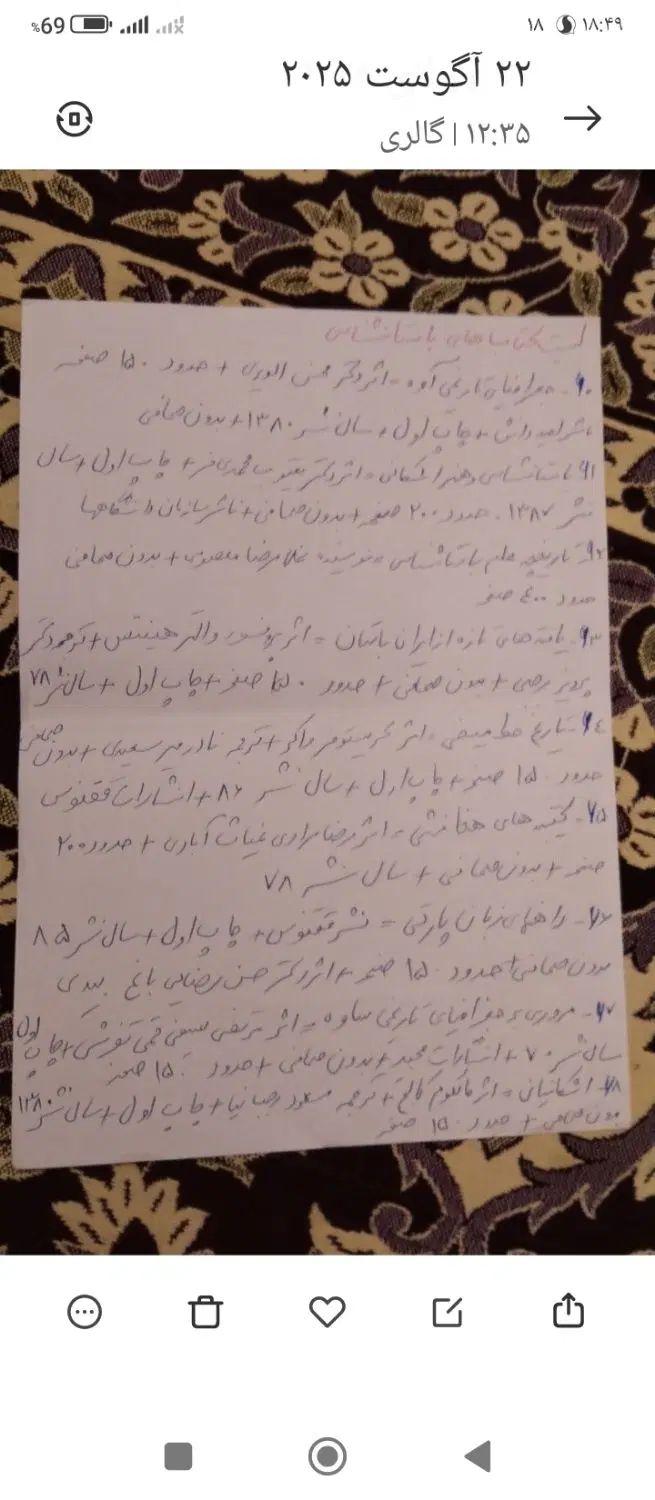 ۱۸:۴۹ ۱۸ %69
۲۲ آگوست ۲۰۲۵
۱۲:۳۵ | گالری
لیست کتاب های باستانشناسی
جغرافیای تاریخی آوه = اثر دکتر حسن + حدود ۱۵۰ صفحه
+ چاپ اول + سال نشر ۱۳۸۰ + بدون صحافی
باستانشناسی و هنر اشکانی = اثر دکتر یعقوب محمدی فر + چاپ اول + سال
نشر ۱۳۸۷ حدود ۲۰۰ صفحه + بدون صحافی + ناشر سازمان دانشگاهها
تاریخچه علم باستانشناسی = نویسنده غلامرضا معصومی + بدون صحافی
حدود ۴۰۰ صفحه
یافته های تازه از ایران باستان = اثر پرفسور والتر هینتس + ترجمه دکتر
پرویز رجبی + بدون صحافی + حدود ۱۵۰ صفحه + چاپ اول + سال نشر ۷۸
تاریخ خط میخی = اثر کریستوفر واکر + ترجمه نادر میر سعیدی + بدون صحافی
حدود ۱۵۰ صفحه + چاپ اول + سال نشر ۸۶ + انتشارات ققنوس
کتیبه های هخامنشی = اثر رضا مرادی غیاث آبادی + حدود ۲۰۰
صفحه + بدون صحافی + سال نشر ۷۸
راهنمای زبان پارتی = نشر ققنوس + چاپ اول + سال نشر ۸۵
بدون صحافی + حدود ۱۵۰ صفحه + اثر دکتر حسن رضایی باغ بیدی
مروری بر جغرافیای تاریخی ساوه = اثر مرتضی سیفی قمی تفرشی + چاپ اول
سال نشر ۷۰ + انتشارات + بدون صحافی + حدود ۱۵۰ صفحه
اشکانیان = اثر مالکوم کالج + ترجمه مسعود رجب نیا + چاپ اول + سال نشر ۱۳۸۰
بدون صحافی + حدود ۱۵۰ صفحه